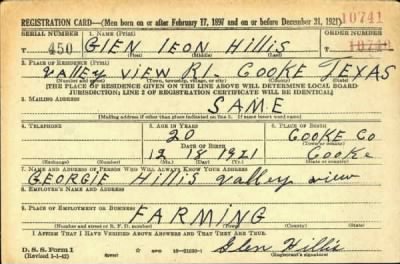 REGISTRATION CARD—(Men born on or after February 17, 1897 and on or before December 31, 1921)
SERIAL NUMBER 1. NAME (Print) ORDER NUMBER
T 450 GLEN LEON HILLIS 10741
(First) (Middle) (Last)
2. PLACE OF RESIDENCE (Print)
VALLEY VIEW R1 COOKE TEXAS
(Number and street) (Town, township, village, or city) (County) (State)
[THE PLACE OF RESIDENCE GIVEN ON THE LINE ABOVE WILL DETERMINE LOCAL BOARD
JURISDICTION; LINE 2 OF REGISTRATION CERTIFICATE WILL BE IDENTICAL]
3. MAILING ADDRESS
SAME
[Mailing address if other than place indicated on line 2. If same insert word same]
4. TELEPHONE 5. AGE IN YEARS 6. PLACE OF BIRTH
20 COOKE CO
DATE OF BIRTH (Town or county)
12 18 1921 COOKE
(Exchange) (Number) (Mo.) (Day) (Yr.) (State or country)
7. NAME AND ADDRESS OF PERSON WHO WILL ALWAYS KNOW YOUR ADDRESS
GEORGIE HILLIS Valley View
8. EMPLOYER'S NAME AND ADDRESS
FARMING
9. PLACE OF EMPLOYMENT OR BUSINESS
(Number and street or R. F. D. number) (Town) (County) (State)
I AFFIRM THAT I HAVE VERIFIED ABOVE ANSWERS AND THAT THEY ARE TRUE.
D. S. S. Form 1
(Revised 1-1-42) Glen Hillis
(Registrant's signature)